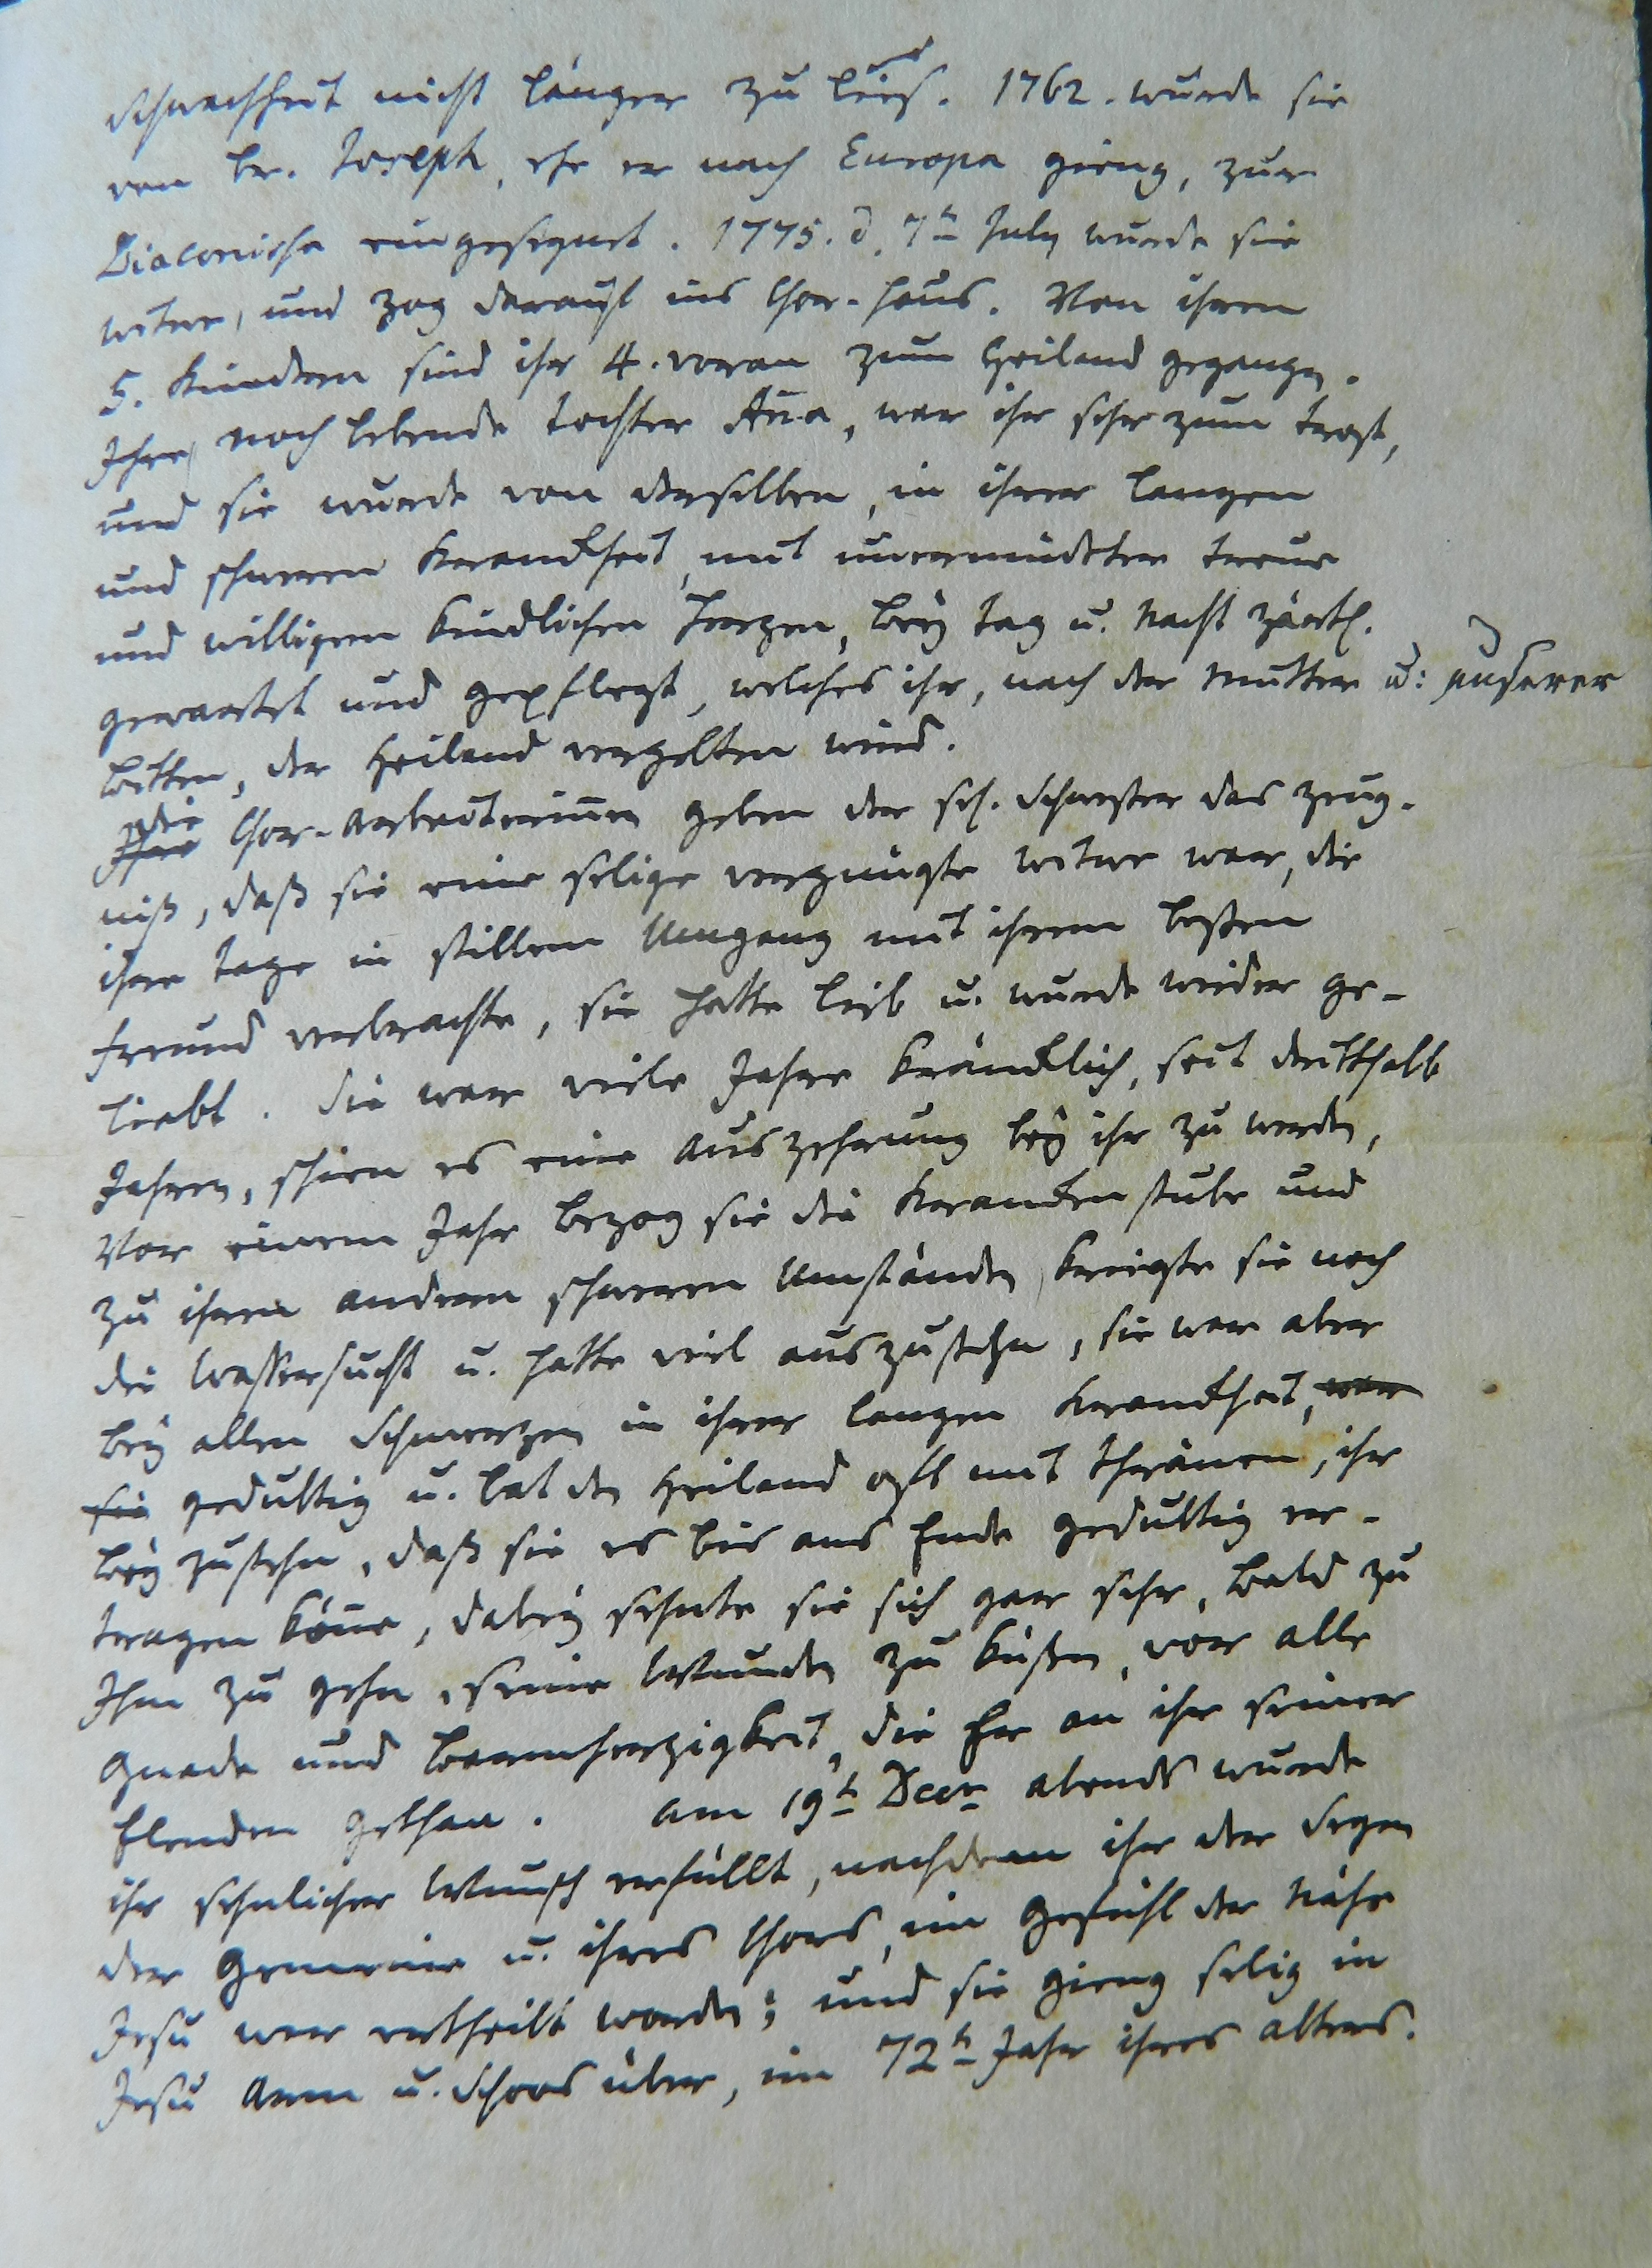 Schwachheit nicht länger zu ließ. 1762. wurde sie
von Br. Joseph, ehe er nach Europa gieng, zur
Diaconisse eingesegnet. 1775. d. 7t July wurde sie
Witwe, und zog darauf ins Chor-Haus. Von ihren
5. Kindern sind ihr 4. voran zum Heiland gegangen.
Ihre noch lebende Tochter Aña, war ihr sehr zum Trost,
und sie wurde von derselben, in ihrer langen
und schweren Kranckheit, mit unermüdeter Treue
und willigem kindlichen Herzen, bey Tag u. Nacht zärtl.
gewartet und gepflegt, welches ihr, nach der Mutter u: unserer
Bitten, der Heiland vergelten wird.
die Chor-Arbeiteriñen geben der sel. Schwester das Zeug-
niß, daß sie eine selige vergnügte Witwe war, die
ihre Tage in stillem Umgang mit ihrem besten
Freund verbrachte, sie hatte lieb u. wurde wieder ge-
liebt. Sie war viele Jahre kräncklich, seit dritthalb
Jahren, schien es eine Auszehrung bey ihr zu werden,
Vor einem Jahr bezog sie die Krancken stube und
zu ihren andern schweren Umständen, kriegte sie noch
die Wassersucht u. hatte viel auszustehn, sie war aber
bey allen Schmerzen in ihrer langen Kranckheit, war
sie gedultig u. bat den Heiland oft mit Thränen, ihr
bey zustehn, daß sie es bis ans Ende gedultig er-
tragen köñe, dabey sehnte sie sich gar sehr, bald zu
Ihm zu gehn, seine Wunden zu küßen, vor alle
Gnade und Barmherzigkeit, die Er an ihr seiner
Elenden gethan. Am 19t Decr abends wurde
ihr sehnlicher Wunsch erfüllt, nachdem ihr der Segen
der Gemeine u. ihres Chors, im Gefühl der Nähe
Jesu war ertheilt worden; und sie gieng selig in
Jesu Arm u. Schoos über, im 72t Jahr ihres Alters.